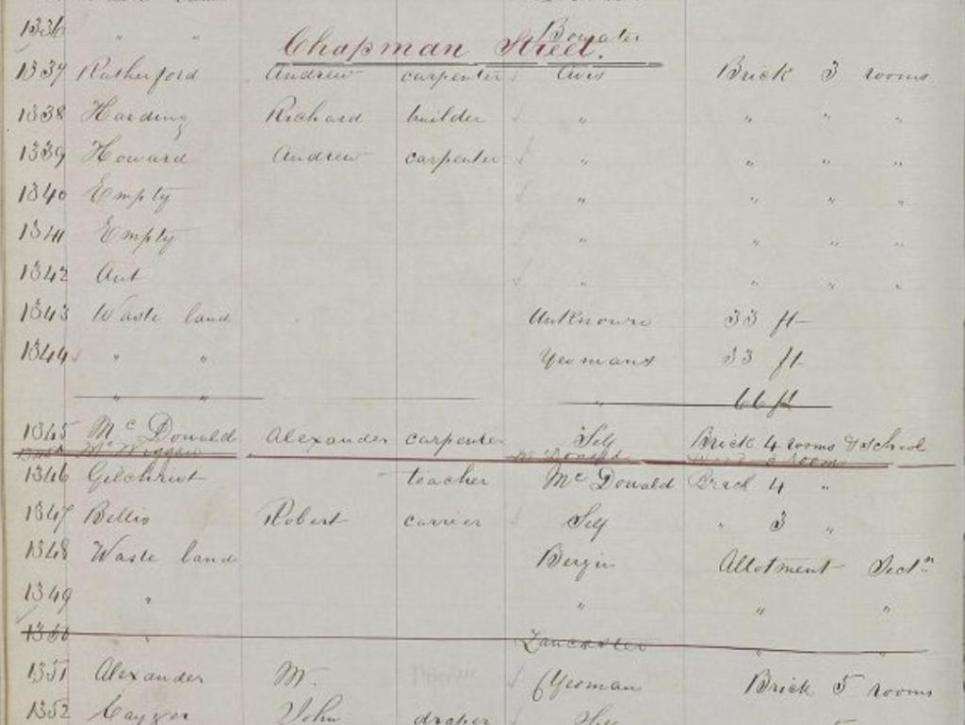 1336 " " Bowater
Chapman Street.
1337 Rutherford Andrew carpenter Avis Brick 3 rooms
1338 Harding Richard builder " " " "
1339 Howard Andrew carpenter " " " "
1340 Empty " " " "
1341 Empty " " " "
1342 Aut " " " "
1343 Waste land Unknown 33 ft
1344 " " Yeomans 33 ft
" " " 66 ft
1345 McDonald Alexander carpenter Self Brick 4 rooms & school
1346 Gilchrist teacher McDonald Brick 4 "
1347 Bellis Robert carrier Self " 3 "
1348 Waste land Bergin Allotment Sectn
1349 " " " "
1350 " Lancaster " "
1351 Alexander M. (Yeoman Brick 5 rooms
1352 John draper Self 5